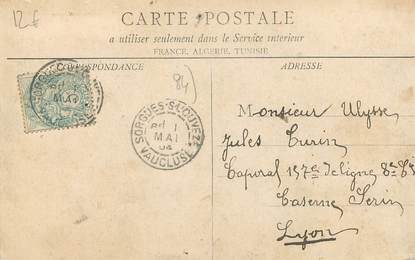 12€
CARTE POSTALE
a utiliser seulement dans le Service interieur
FRANCE, ALGERIE, TUNISIE
CORRESPONDANCE
ADRESSE
84
SORGUES-S-L'OUVEZE
1
MAI
04
VAUCLUSE
Monsieur Ulysse
Jules Turin
Caporal 157e de ligne
Caserne Serin
Lyon